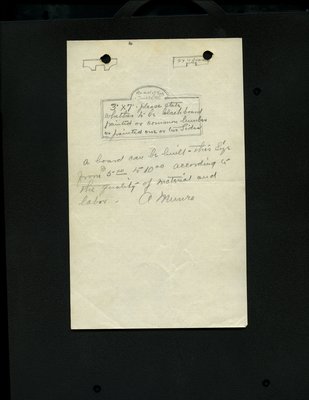 3' x 7' - please state
whether to be blackboard
painted or common lumber
or painted one or two sides
A board can be built - this size
from 5.00 to 10.00 according to
the quality of material and
labor. - A Munro